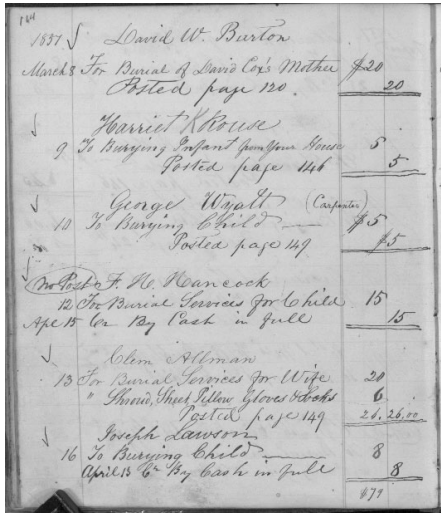 164
1857 David W. Burton
March 8 For Burial of David Cox's Mother $20
Posted page 120. 20
Harriet Krouse
9 To Burying Infant from Your House 5
Posted page 146 5
George Wyatt (Carpenter)
10 To Burying Child $5
Posted page 149 $5
No Post F. H. Hancock
12 For Burial Services for Child 15
Apl 15 Cr By Cash in full 15
Clem Allman
13 For Burial Services for Wife 20
" Shroud, Sheet, Pillow Gloves & Socks 6
Posted page 149 26.00
Joseph Lawson
16 To Burying Child 8
April 13 Cr By Cash in full 8
$79